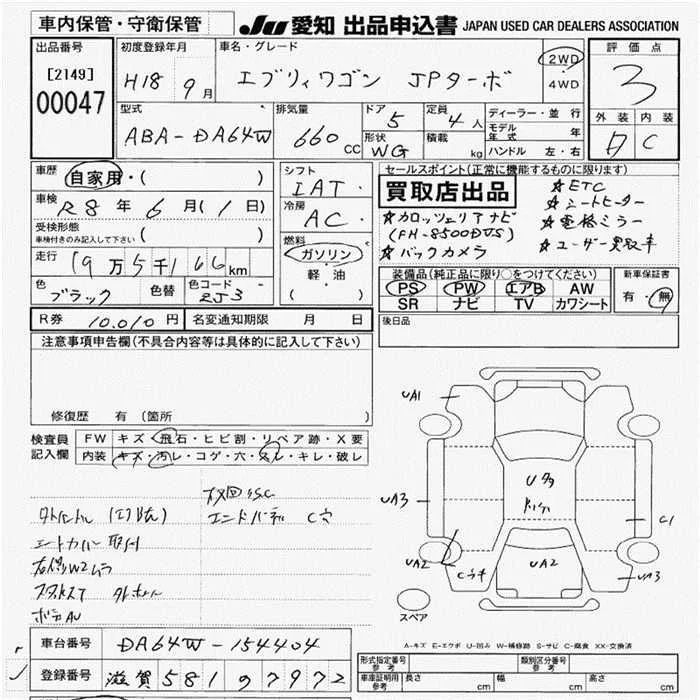 車内保管・守衛保管
JU 愛知 出品申込書 JAPAN USED CAR DEALERS ASSOCIATION
出品番号
[2149]
00047
初度登録年月
H18 9月
車名・グレード
エブリィワゴン JPターボ
2WD
・
4WD
評価点
3
外装 内装
A C
型式
ABA-DA64W
排気量
660 cc
ドア
5
形状
WG
定員
4人
積載
kg
ディーラー・並行
モデル年式 年
ハンドル 左・右
車歴
自家用・( )
車検
R8年 6月(1日)
受検形態
車検付きのみ記入して下さい ( )
走行
19万5千166km
色
ブラック
色替
色コード
ZJ3
シフト
IAT・
冷房
AC・
燃料
ガソリン
・
軽・油
( )
セールスポイント(正常に機能するものに限ります)
買取店出品
☆カロッツェリアナビ
(FH-8500DVS)
☆バックカメラ
☆ETC
☆シートヒーター
☆電格ミラー
☆ユーザー買取車
装備品(純正品に限り○をつけてください)
PS PW エアB AW
SR ナビ TV カワシート
新車保証書
有・無
R券 10,010円 名変通知期限 月 日
後日品
注意事項申告欄(不具合内容等は具体的に記入して下さい)
修復歴 有(箇所 )
検査員
記入欄
FW キズ・飛石・ヒビ割・リペア跡・X要
内装 キズ・汚レ・コゲ・穴・スレ・キレ・破レ
エンドパーテ C穴
シートカバー取付
UA1
UA3
UA2
Cウキ
U多
UA2
C1
UA3
スペア
A-キズ E-エクボ U-凹み W-補修跡 S-サビ C-腐食 XX-交換済
車台番号 DA64W-154404
登録番号 滋賀581 97972
形式指定番号
参考
類別区分番号
参考
車庫証明用
参考
長さ cm 幅 cm 高さ cm